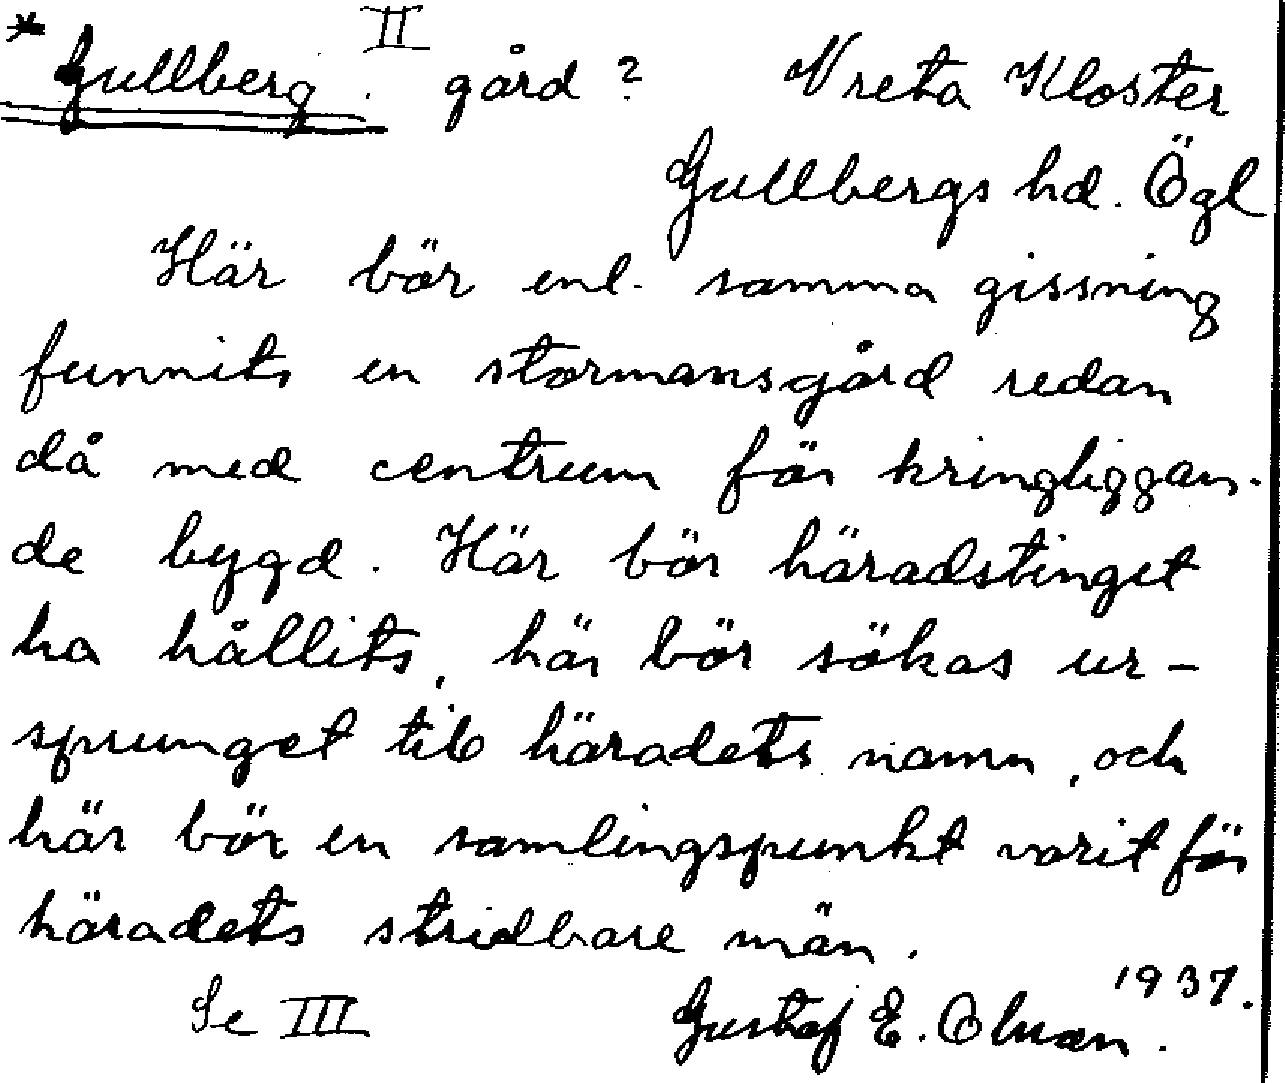 * Gullberg. II gård? Vreta Kloster
Gullbergs hd. Ögl
Här bör enl. samma gissning
funnits en stormansgård redan
då med centrum för kringliggan-
de bygd. Här bör häradstinget
ha hållits, här bör sökas ur-
sprunget till häradets namn, och
här bör en samlingspunkt varit för
häradets stridbare män.
Se III Gustaf E. Olman. 1937.